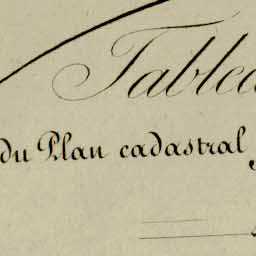 Tablea
du Plan cadastral